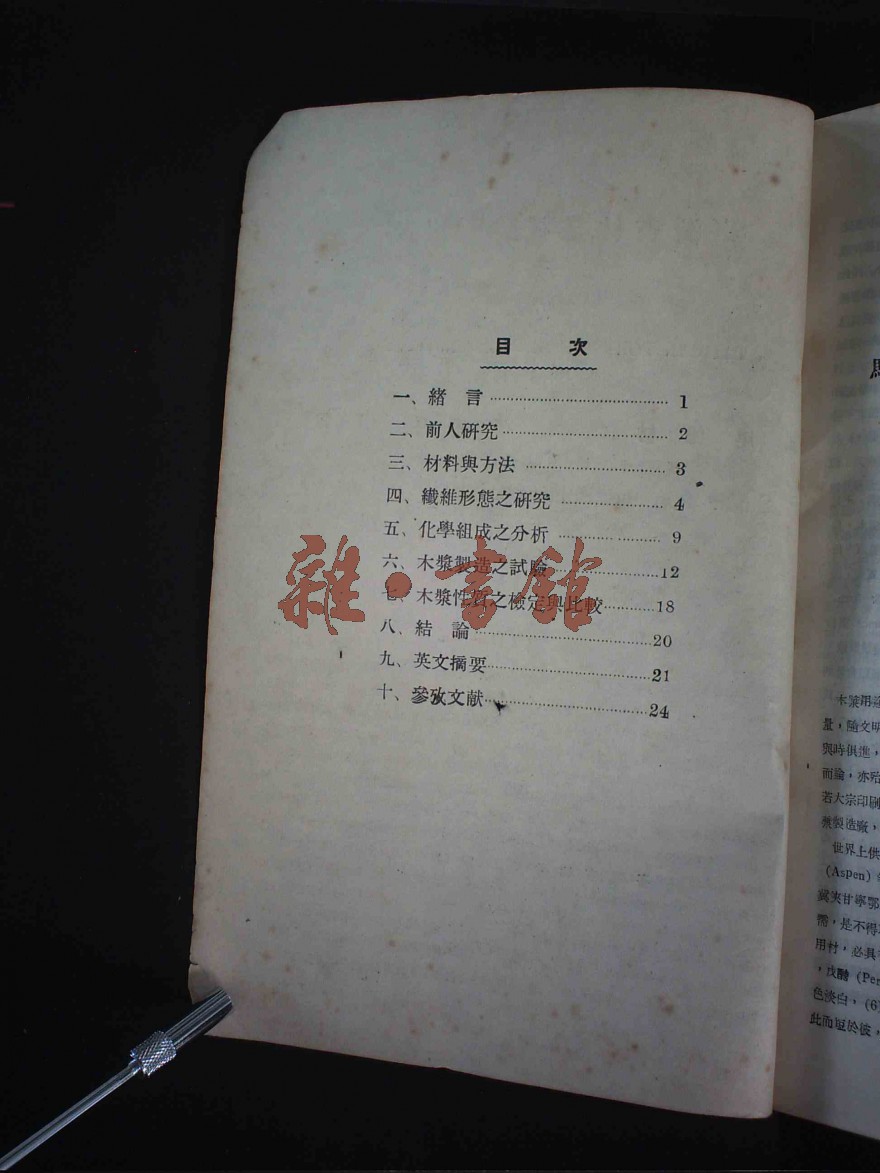 目　次
一、緒　言 ………………………………… 1
二、前人研究 ……………………………… 2
三、材料與方法 …………………………… 3
四、纖維形態之研究 ……………………… 4
五、化學組成之分析 ……………………… 9
六、木漿製造之試驗 ……………………… 12
七、木漿性質之檢定與比較 ……………… 18
八、結　論 ………………………………… 20
九、英文摘要 ……………………………… 21
十、參攷文献 ……………………………… 24
雜·書館
量，隨文明
與時俱進，
而論，亦殆
若大宗印刷
漿製造廠，
世界上供
(Aspen)
冀陝甘寧鄂
需，是不得
用材，必具
色淡白，(6
此而短於彼，